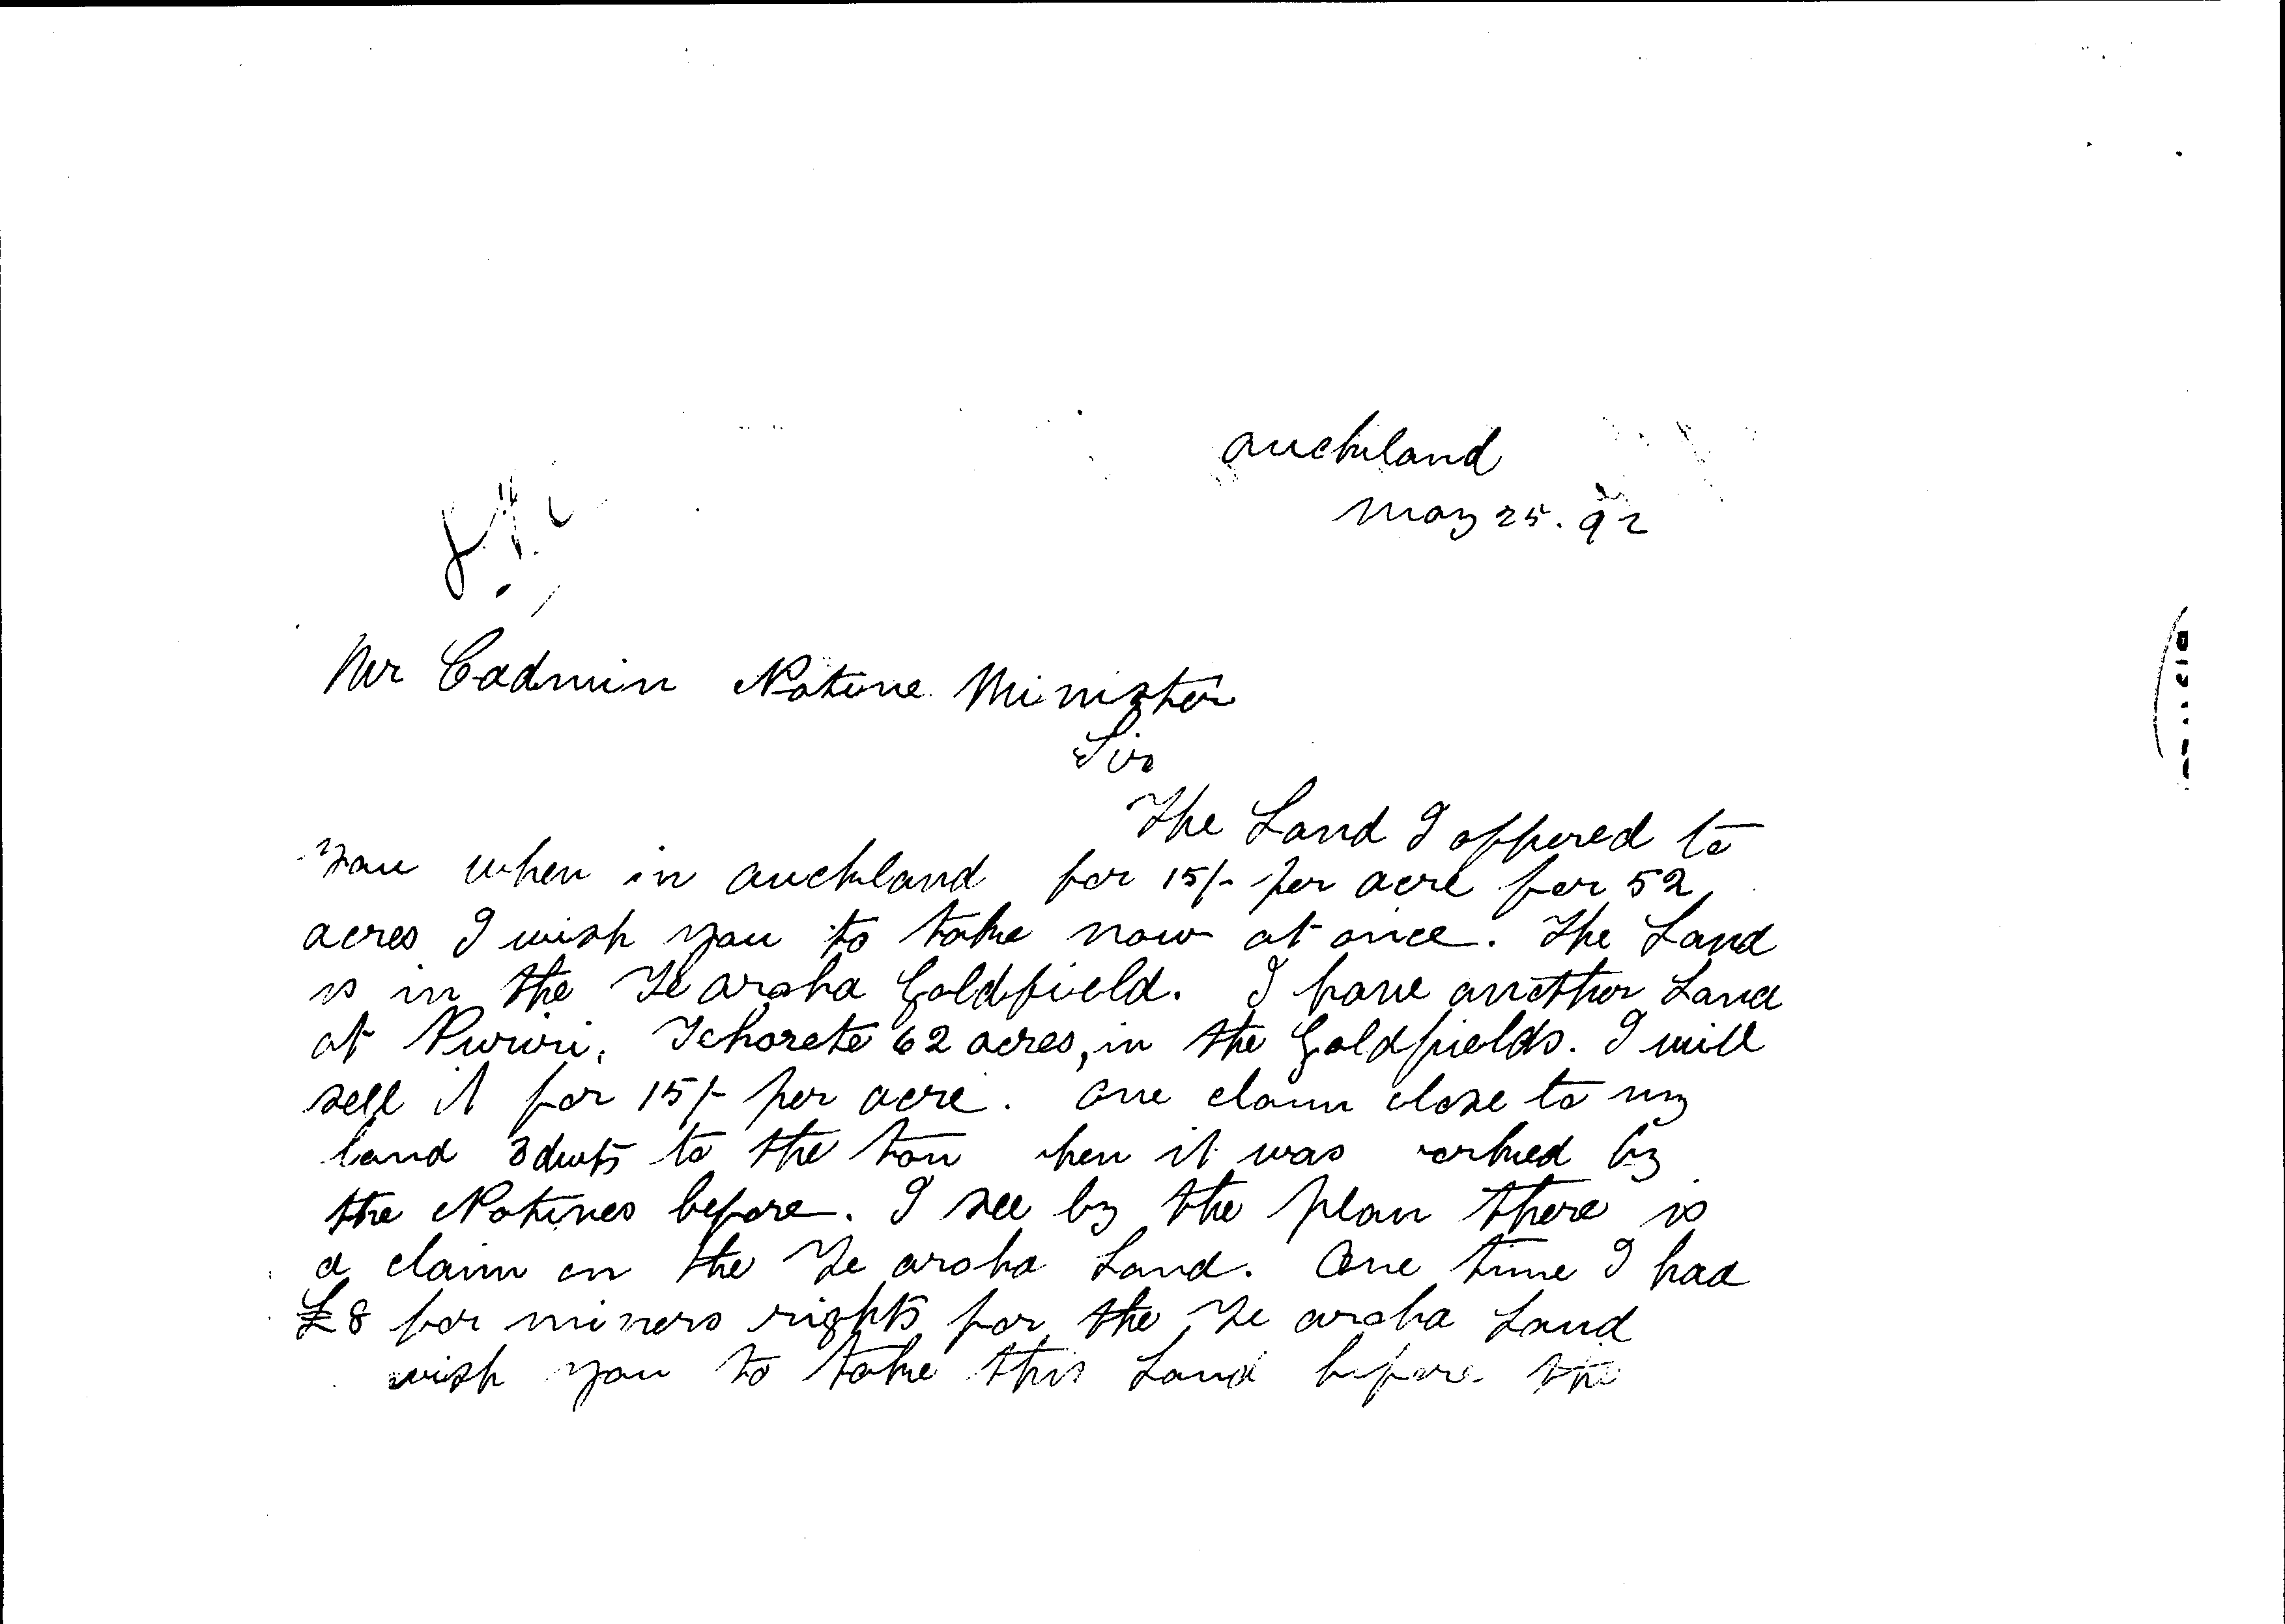 Auckland
May 25. 92
Mr Cadmin Native Minister
Sir
The Land I offered to
you when in Auckland for 15/- per acre for 52
acres I wish you to take now at once. The Land
is in the Te aroha Goldfield. I have another Land
at Puriri, 62 acres, in the Goldfields. I will
sell it for 15/- per acre. One claim close to my
land 3 dwts to the ton hen it was orked by
the Natives before. I see by the plan there is
a claim on the Te aroha Land. One time I had
£8 for miners rights for the Te aroha Land
wish you to take this Land before the